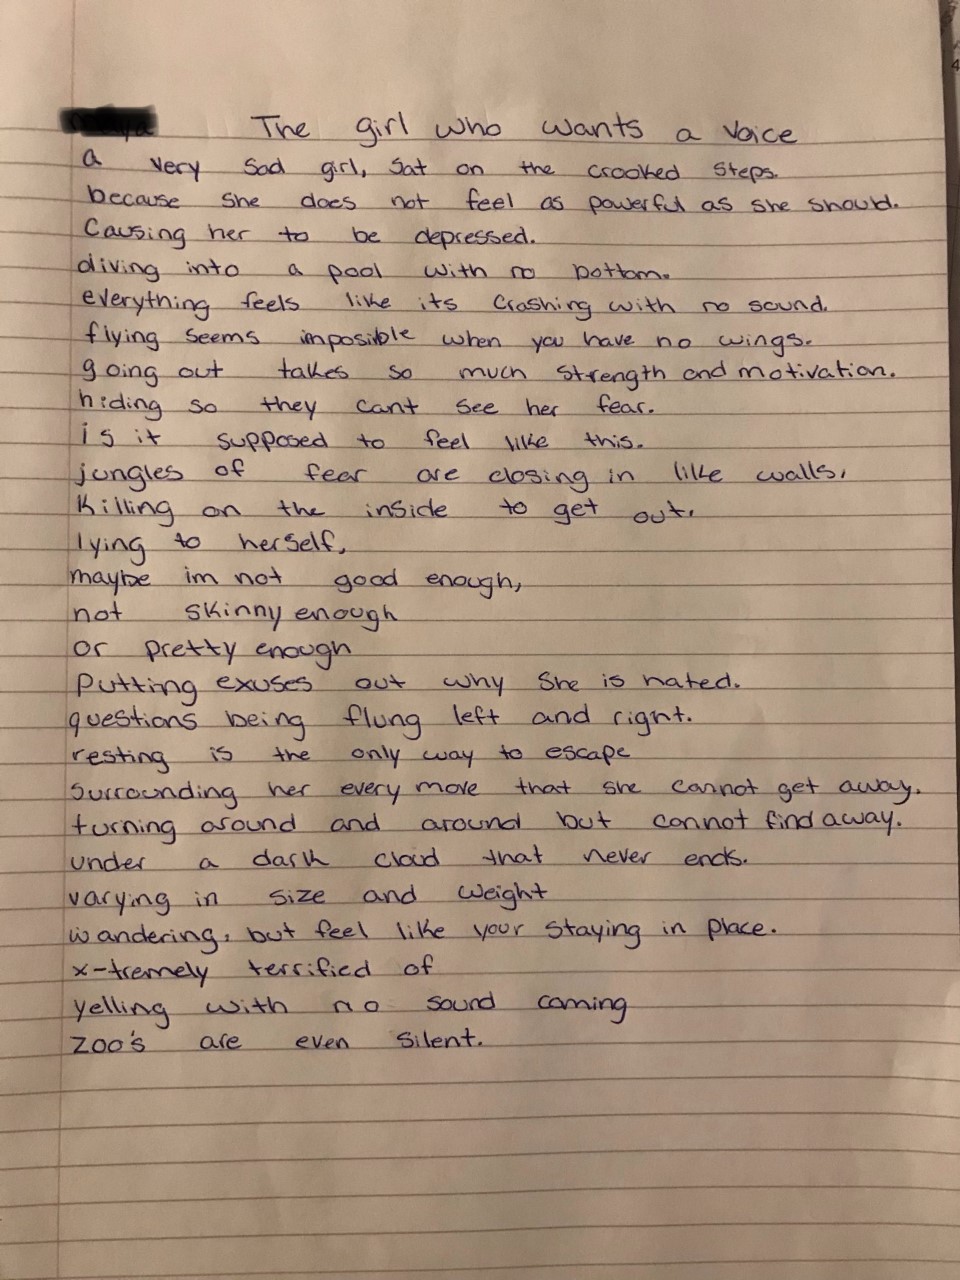 The girl who wants a voice
a very sad girl, sat on the crooked steps.
because she does not feel as powerful as she should.
Causing her to be depressed.
diving into a pool with no bottom.
everything feels like its crashing with no sound.
flying seems imposible when you have no wings.
going out takes so much strength and motivation.
hiding so they cant see her fear.
is it supposed to feel like this.
jungles of fear are closing in like walls,
Killing on the inside to get out.
lying to herself,
maybe im not good enough,
not skinny enough
or pretty enough
Putting exuses out why she is hated.
questions being flung left and right.
resting is the only way to escape
Surrounding her every move that she cannot get away.
turning around and around but cannot find away.
under a dark cloud that never ends.
varying in size and weight
wandering, but feel like your staying in place.
x-tremely terrified of
yelling with no sound coming
zoo's are even silent.